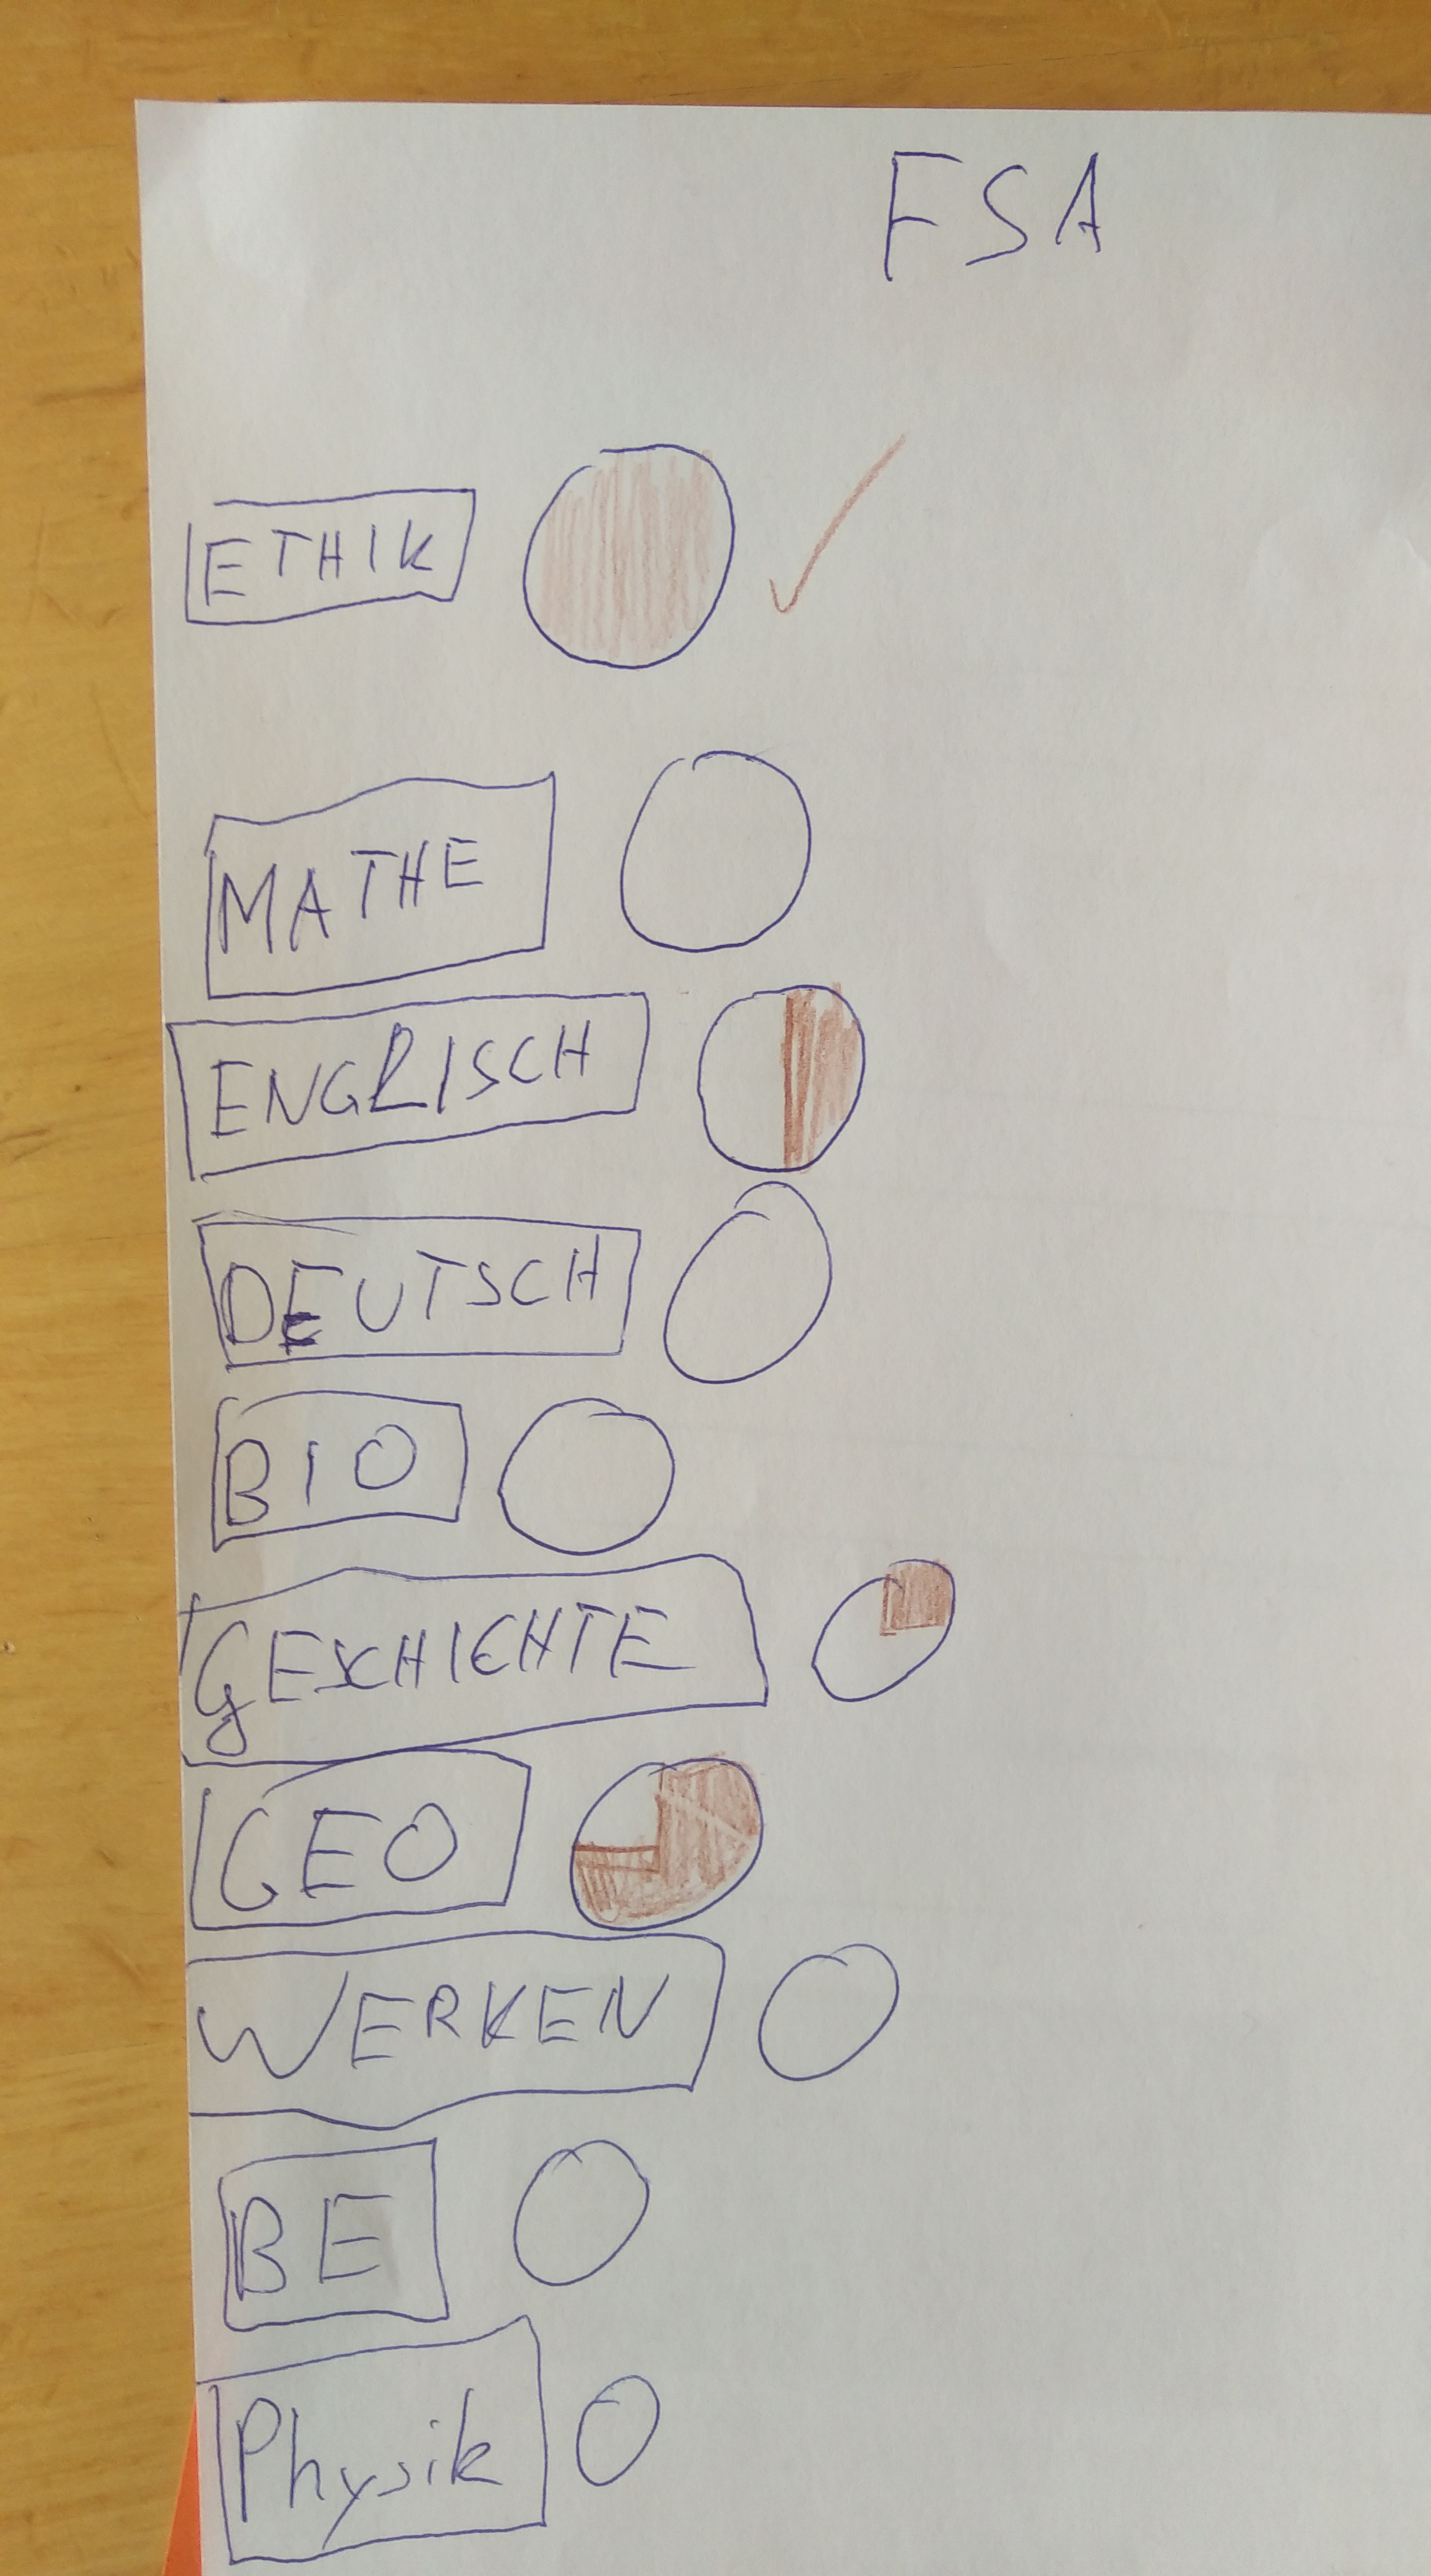 FSA
ETHIK
MATHE
ENGLISCH
DEUTSCH
BIO
GESCHICHTE
GEO
WERKEN
BE
Physik